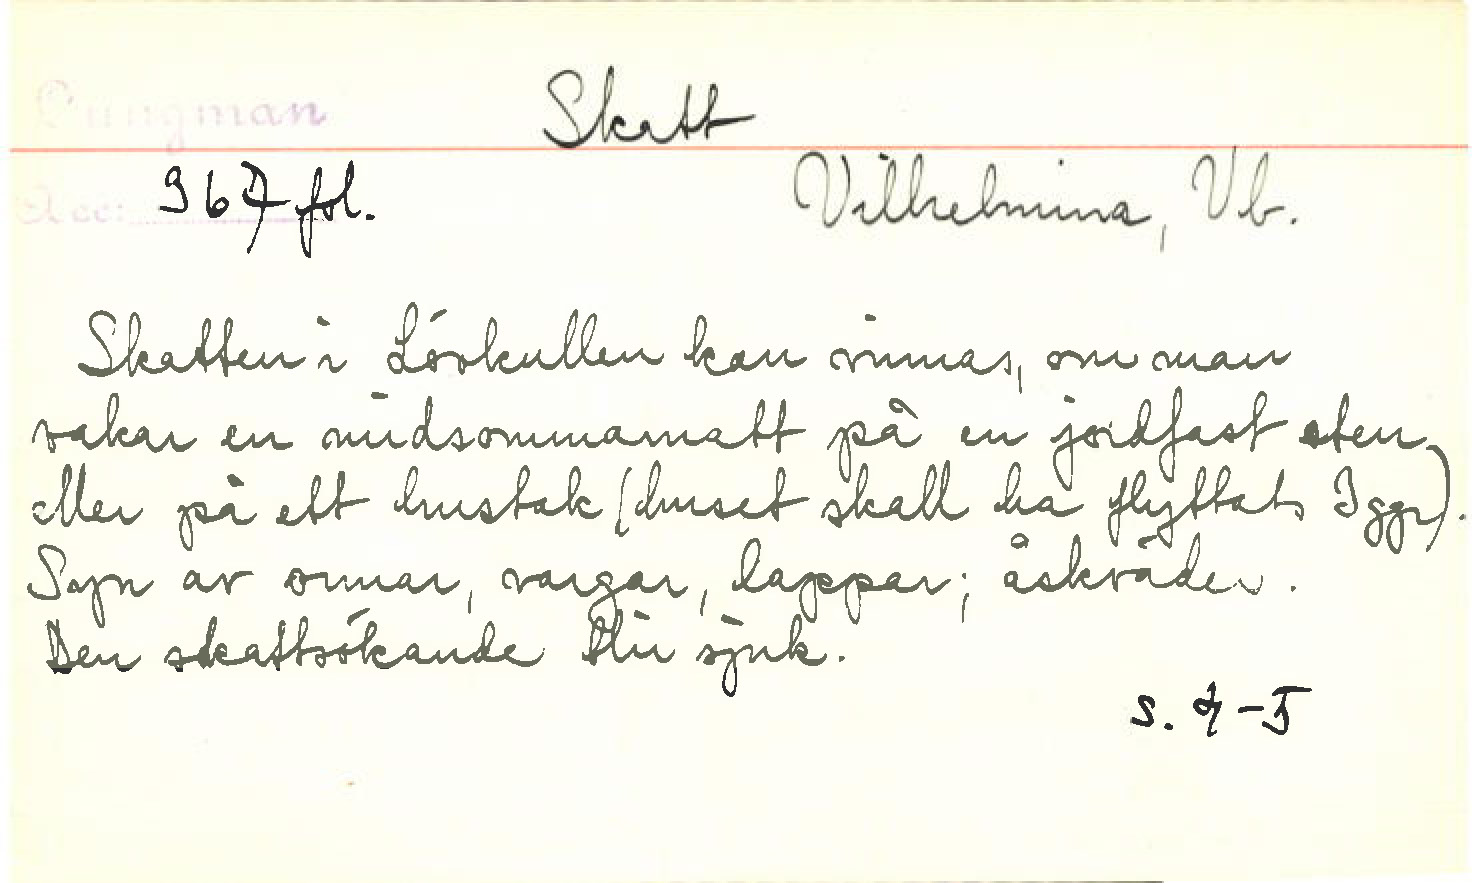 Ljungman
Skatt
Acc: 967 fol.
Vilhelmina, Vb.
Skatten i Lövkullen kan vinnas, om man
vakar en midsommarnatt på en jordfast sten
eller på ett hustak (huset skall ha flyttats 3 ggr).
Syn av ormar, vargar, lappar; åskväder.
Den skattsökande blir sjuk.
s. 4-5